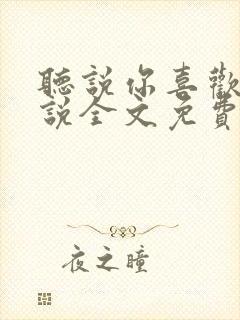 聽說你喜歡
說全文免費
夜之瞳